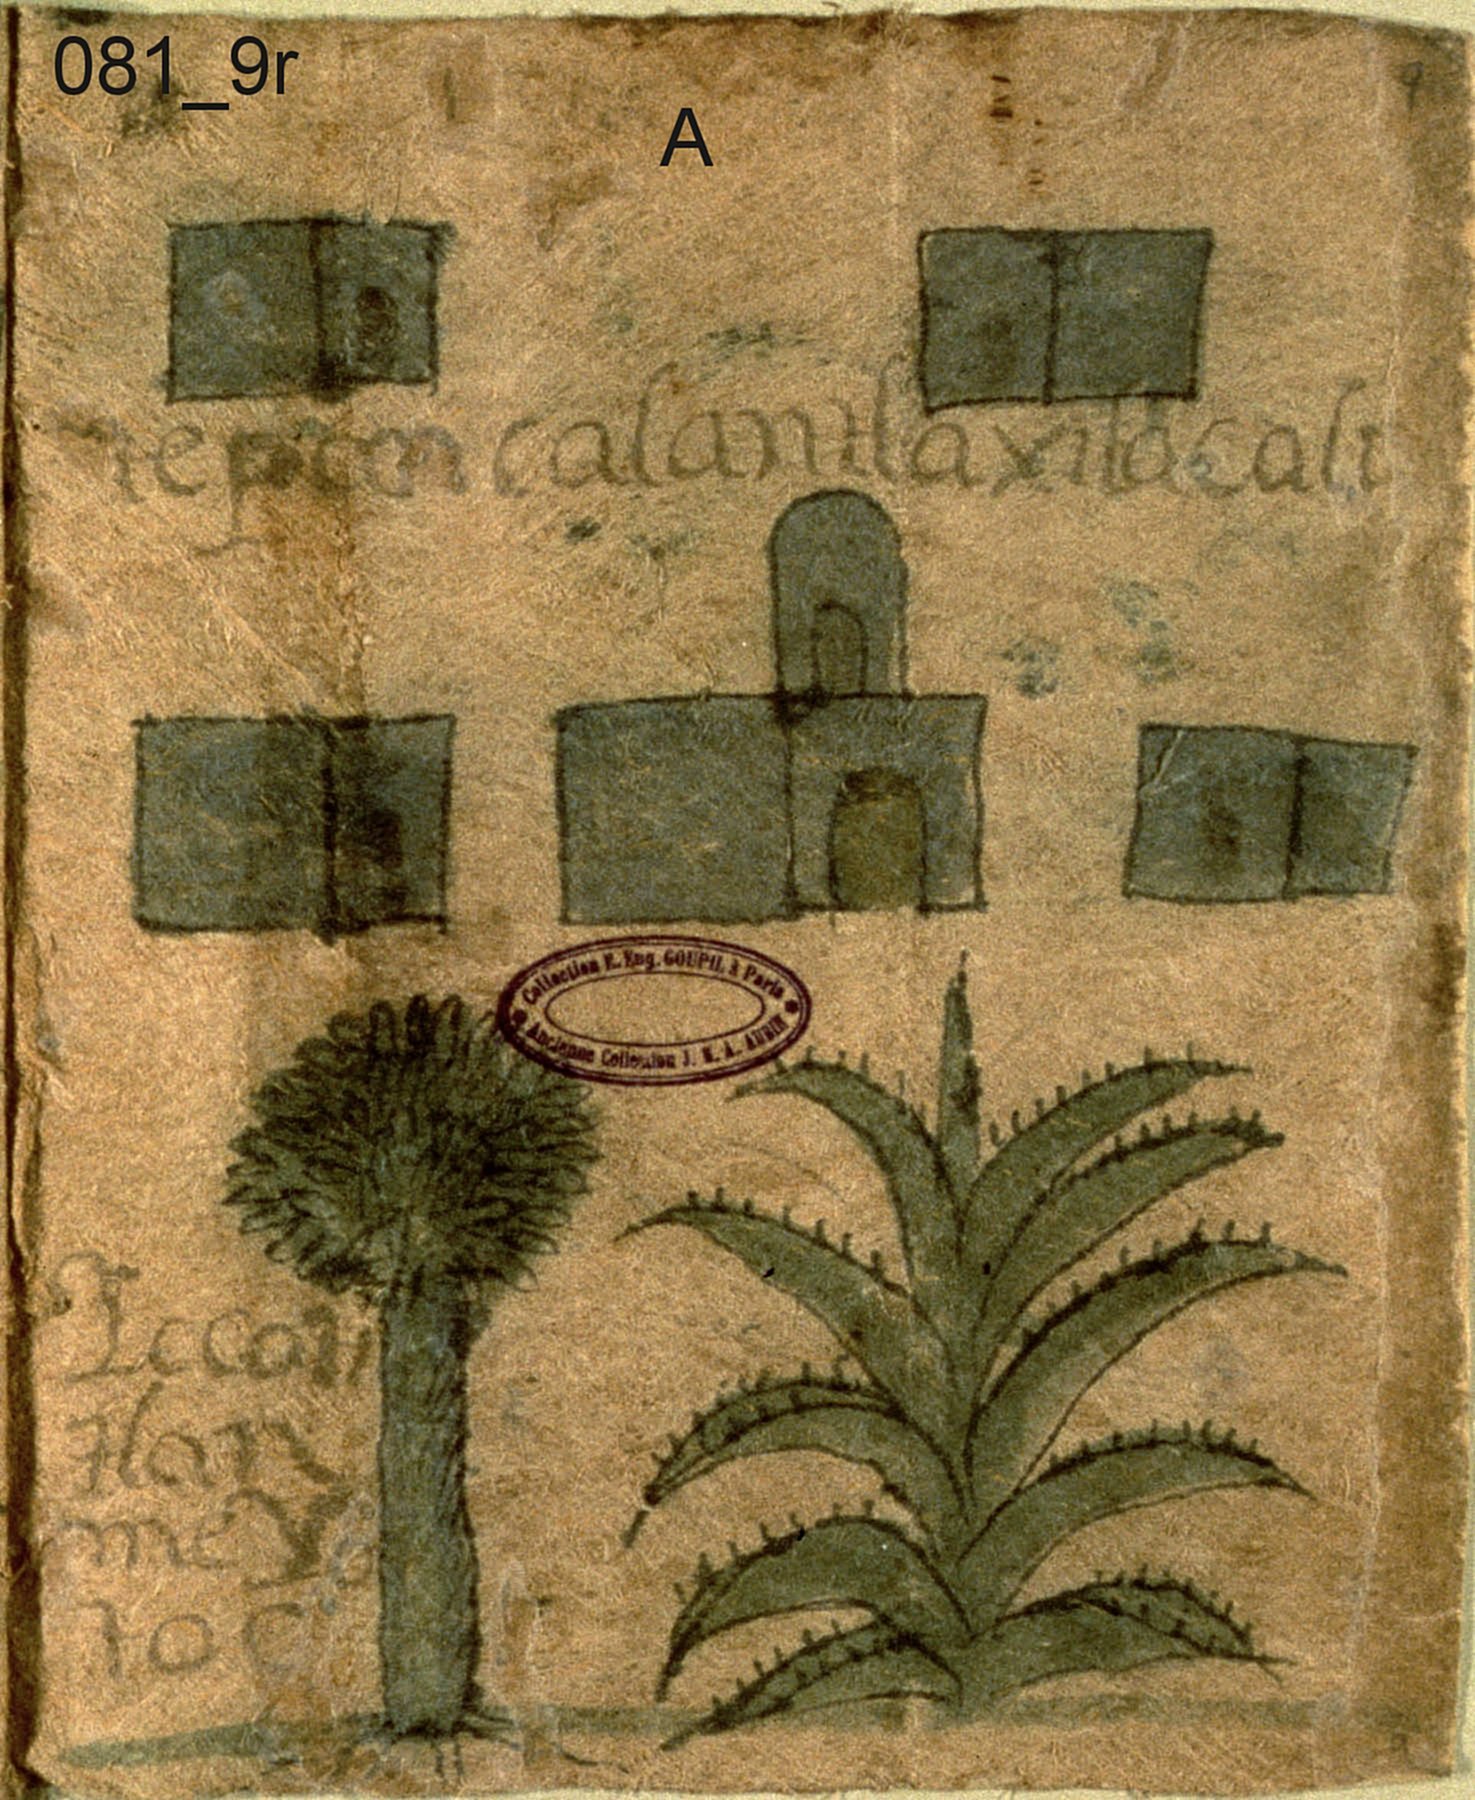 081_9r
9
A
teponcalantlaxilacali
Collection E. Eug. GOUPIL à Paris
Ancienne Collection J. M. A. AUBIN
Iccan
tlan
meYo
toc